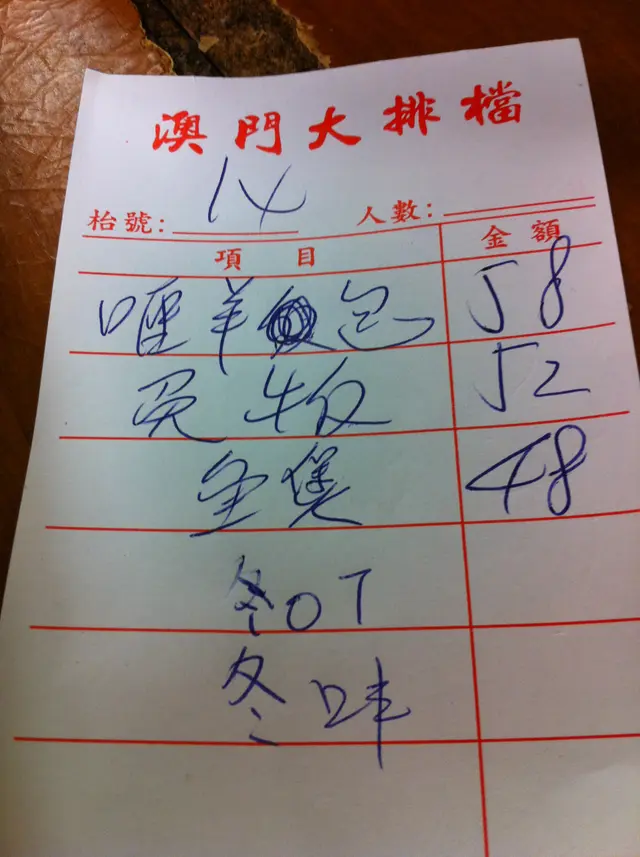 澳門大排檔
枱號: 14 人數:
項目 金額
喱羊包 58
牛反 52
煲 48
冬OT
冬